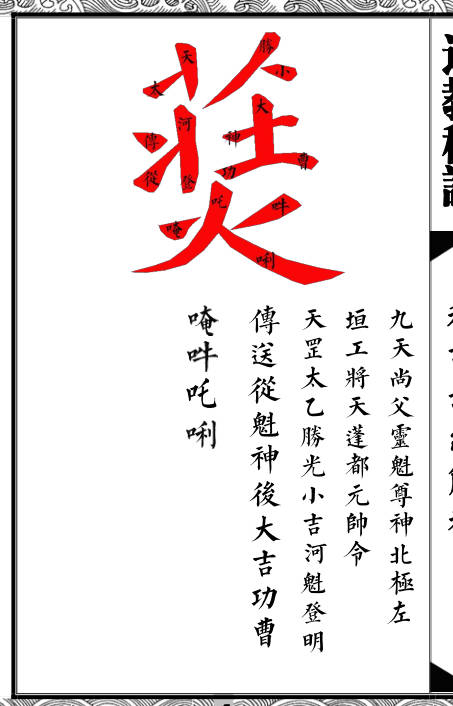 九天尚父靈魁尊神北極左
垣工將天蓬都元帥令
天罡太乙勝光小吉河魁登明
傳送從魁神後大吉功曹
唵吽吒唎
天
太
勝
小
大
河
傳
神
曹
從
登
功
吒
吽
唵
唎